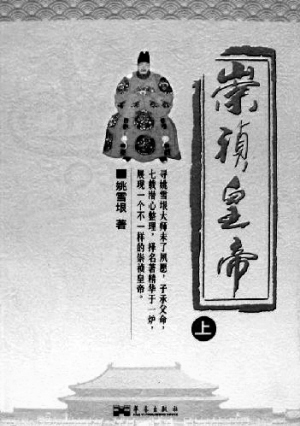 崇祯皇帝
上
寻姚雪垠大师未了夙愿，子承父命，
七载潜心整理，择名著精华于一炉，
展现一个不一样的崇祯皇帝。
姚雪垠 著
华艺出版社